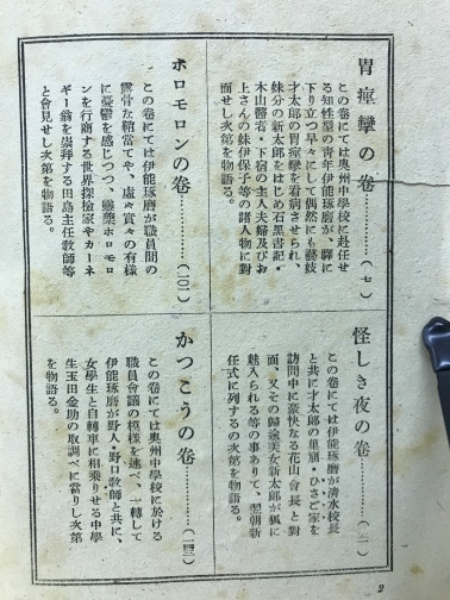 胃痙攣の巻……………(七)
この卷にては奥州中學校に赴任せ
る知性型の青年伊能琢磨が、驛に
下り立つ早々にして偶然にも藝妓
才太郎の胃痙攣を看病させられ、
妹分の新太郎をはじめ石黑書記・
木山醫者・下宿の主人夫婦及びお
上さんの妹伊保子等の諸人物に對
面せし次第を物語る。
怪しき夜の卷…………
この卷にては伊能琢磨が淸水校長
と共に才太郎の巣窟・ひさご家を
訪問中に豪快なる花山會長と對
面、又その歸途美女新太郎が狐に
魅入られる等の事ありて、翌朝新
任式に列するの次第を物語る。
ホロモロンの卷……………(一〇一)
この卷にては伊能琢磨が職員間の
露骨な鞘當てや、虛々實々の有樣
に憂鬱を感じつつ、戀藥ホロモロ
ンを行商する世界探檢家やカーネ
ギー翁を崇拜する田島主任敎師等
と會見せし次第を物語る。
かつこうの卷……………(一四三)
この卷にては奥州中學校に於ける
職員會議の模樣を述べ、一轉して
伊能琢磨が野人・野口敎師と共に、
女學生と自轉車に相乘りせる中學
生玉田金助の取調べに當りし次第
を物語る。
2